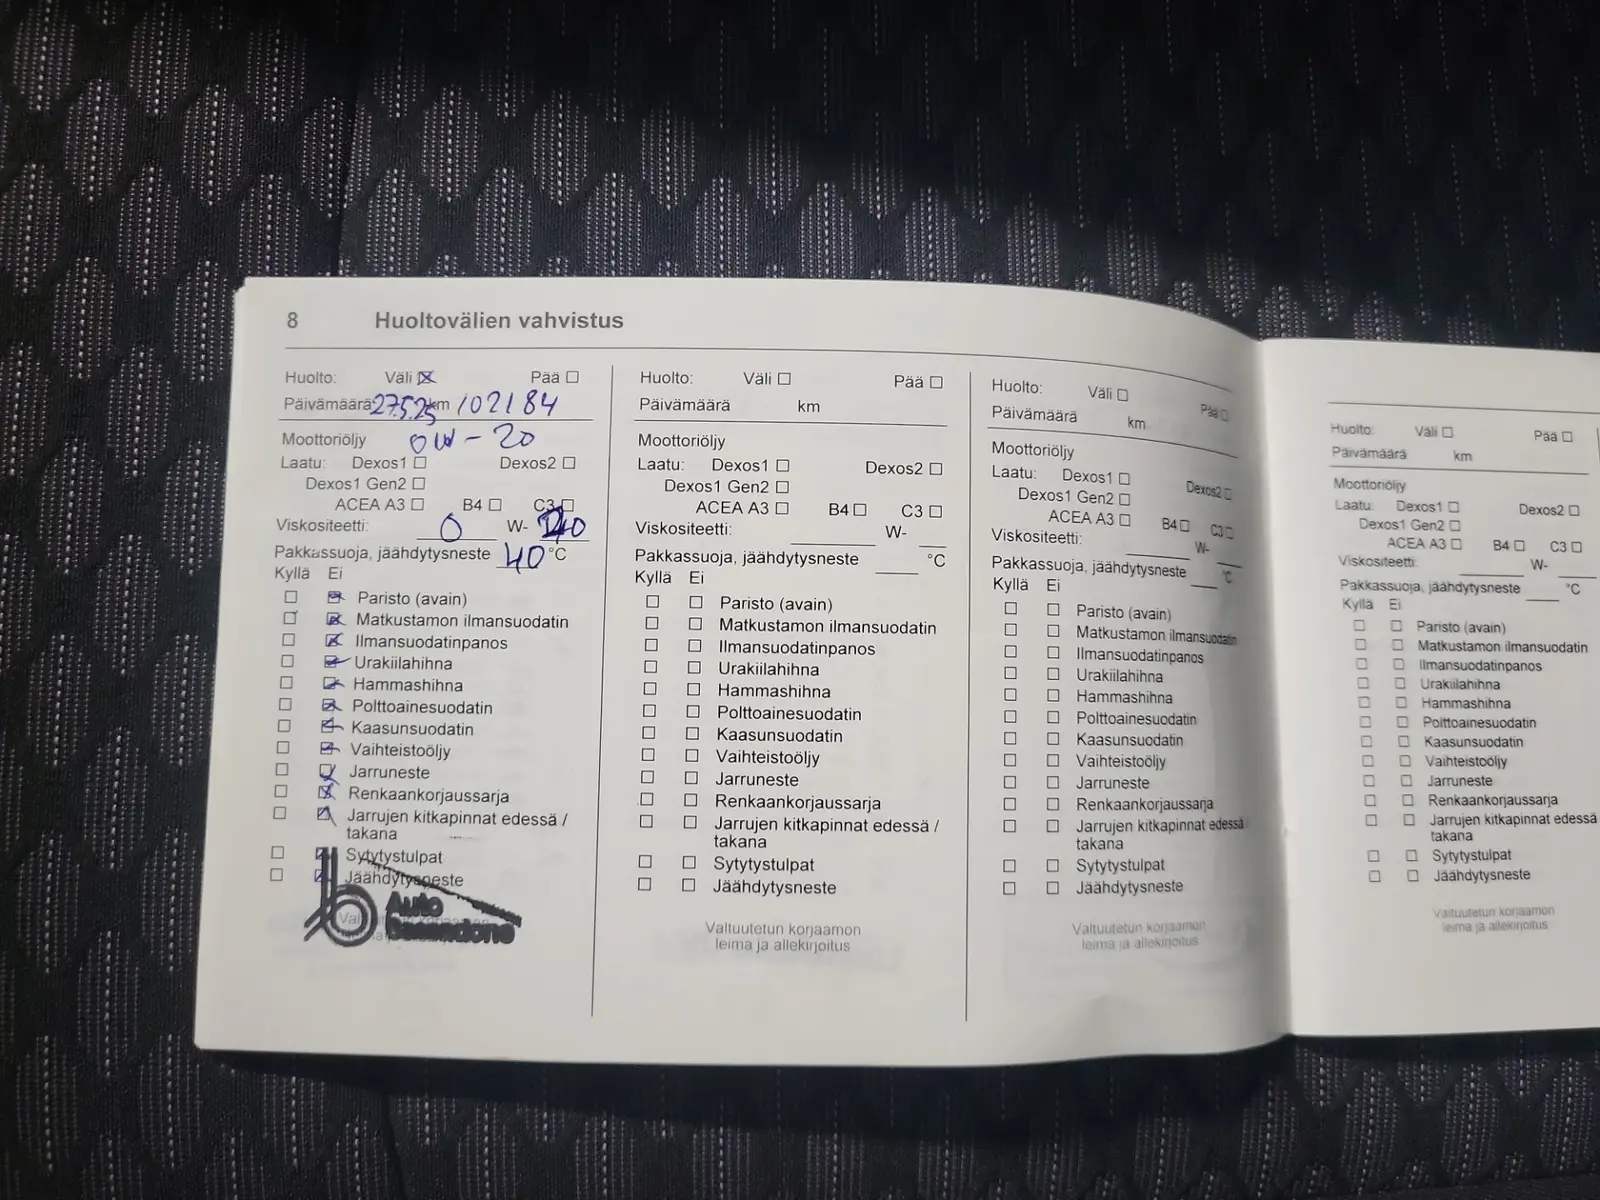 8 Huoltovälien vahvistus
Huolto: Väli Pää
Päivämäärä 27.5.25 km 102184
Moottoriöljy 0W-20
Laatu: Dexos1 Dexos2
Dexos1 Gen2
ACEA A3 B4 C3
Viskositeetti: 0 W- 20
Pakkassuoja, jäähdytysneste 40 °C
Kyllä Ei
Paristo (avain)
Matkustamon ilmansuodatin
Ilmansuodatinpanos
Urakiilahihna
Hammashihna
Polttoainesuodatin
Kaasunsuodatin
Vaihteistoöljy
Jarruneste
Renkaankorjaussarja
Jarrujen kitkapinnat edessä /
takana
Sytytystulpat
Jäähdytysneste
Auto
Huolto: Väli Pää
Päivämäärä km
Moottoriöljy
Laatu: Dexos1 Dexos2
Dexos1 Gen2
ACEA A3 B4 C3
Viskositeetti: W-
Pakkassuoja, jäähdytysneste °C
Kyllä Ei
Paristo (avain)
Matkustamon ilmansuodatin
Ilmansuodatinpanos
Urakiilahihna
Hammashihna
Polttoainesuodatin
Kaasunsuodatin
Vaihteistoöljy
Jarruneste
Renkaankorjaussarja
Jarrujen kitkapinnat edessä /
takana
Sytytystulpat
Jäähdytysneste
Valtuutetun korjaamon
leima ja allekirjoitus
Huolto: Väli Pää
Päivämäärä km
Moottoriöljy
Laatu: Dexos1 Dexos2
Dexos1 Gen2
ACEA A3 B4 C3
Viskositeetti: W-
Pakkassuoja, jäähdytysneste °C
Kyllä Ei
Paristo (avain)
Matkustamon ilmansuodatin
Ilmansuodatinpanos
Urakiilahihna
Hammashihna
Polttoainesuodatin
Kaasunsuodatin
Vaihteistoöljy
Jarruneste
Renkaankorjaussarja
Jarrujen kitkapinnat edessä /
takana
Sytytystulpat
Jäähdytysneste
Valtuutetun korjaamon
leima ja allekirjoitus
Huolto: Väli Pää
Päivämäärä km
Moottoriöljy
Laatu: Dexos1 Dexos2
Dexos1 Gen2
ACEA A3 B4 C3
Viskositeetti: W-
Pakkassuoja, jäähdytysneste °C
Kyllä Ei
Paristo (avain)
Matkustamon ilmansuodatin
Ilmansuodatinpanos
Urakiilahihna
Hammashihna
Polttoainesuodatin
Kaasunsuodatin
Vaihteistoöljy
Jarruneste
Renkaankorjaussarja
Jarrujen kitkapinnat edessä
takana
Sytytystulpat
Jäähdytysneste
Valtuutetun korjaamon
leima ja allekirjoitus